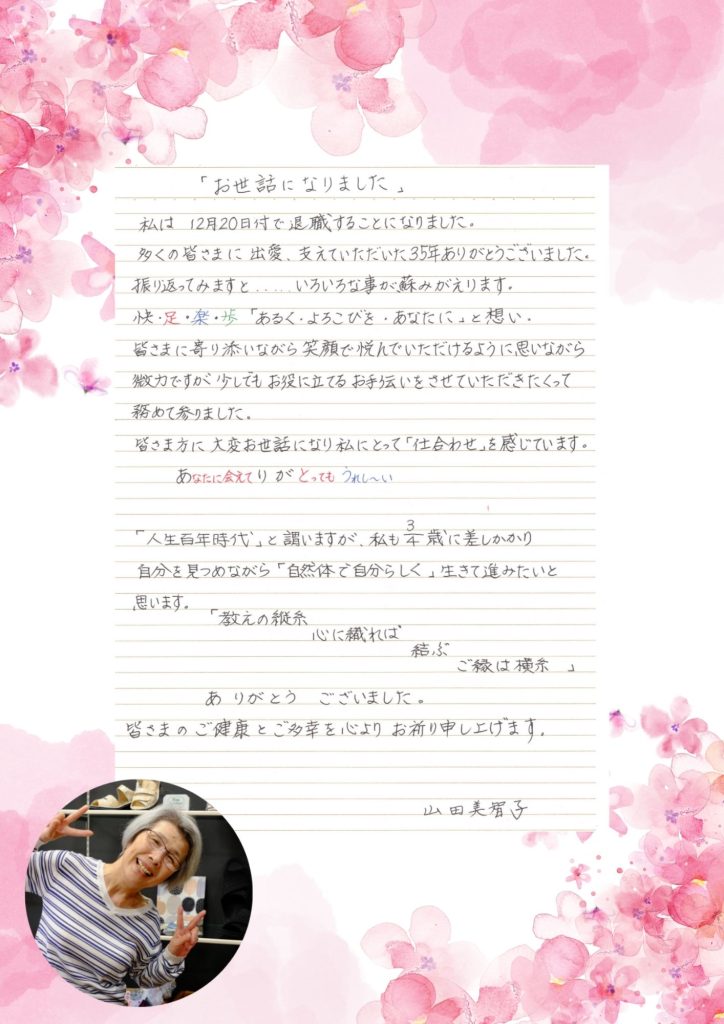 「お世話になりました」
私は 12月20日付で退職することになりました。
多くの皆さまに出愛、支えていただいた35年ありがとうございました。
振り返ってみますと.....いろいろな事が蘇みがえります。
快・足・楽・歩「あるく・よろこびを・あなたに」と想い・
皆さまに寄り添いながら笑顔で悦んでいただけるように思いながら
微力ですが少しでもお役に立てるお手伝いをさせていただきたくって
務めて参りました。
皆さま方に大変お世話になり私にとって「仕合わせ」を感じています。
あなたに会えてりがとってもうれし〜い
「人生百年時代」と謂いますが、私も3/4歳に差しかかり
自分を見つめながら「自然体で自分らしく」生きて進みたいと
思います。
「教えの縦糸
心に織れば
結ぶ
ご縁は横糸」
ありがとう ございました。
皆さまのご健康とご多幸を心よりお祈り申し上げます。
山田美智子